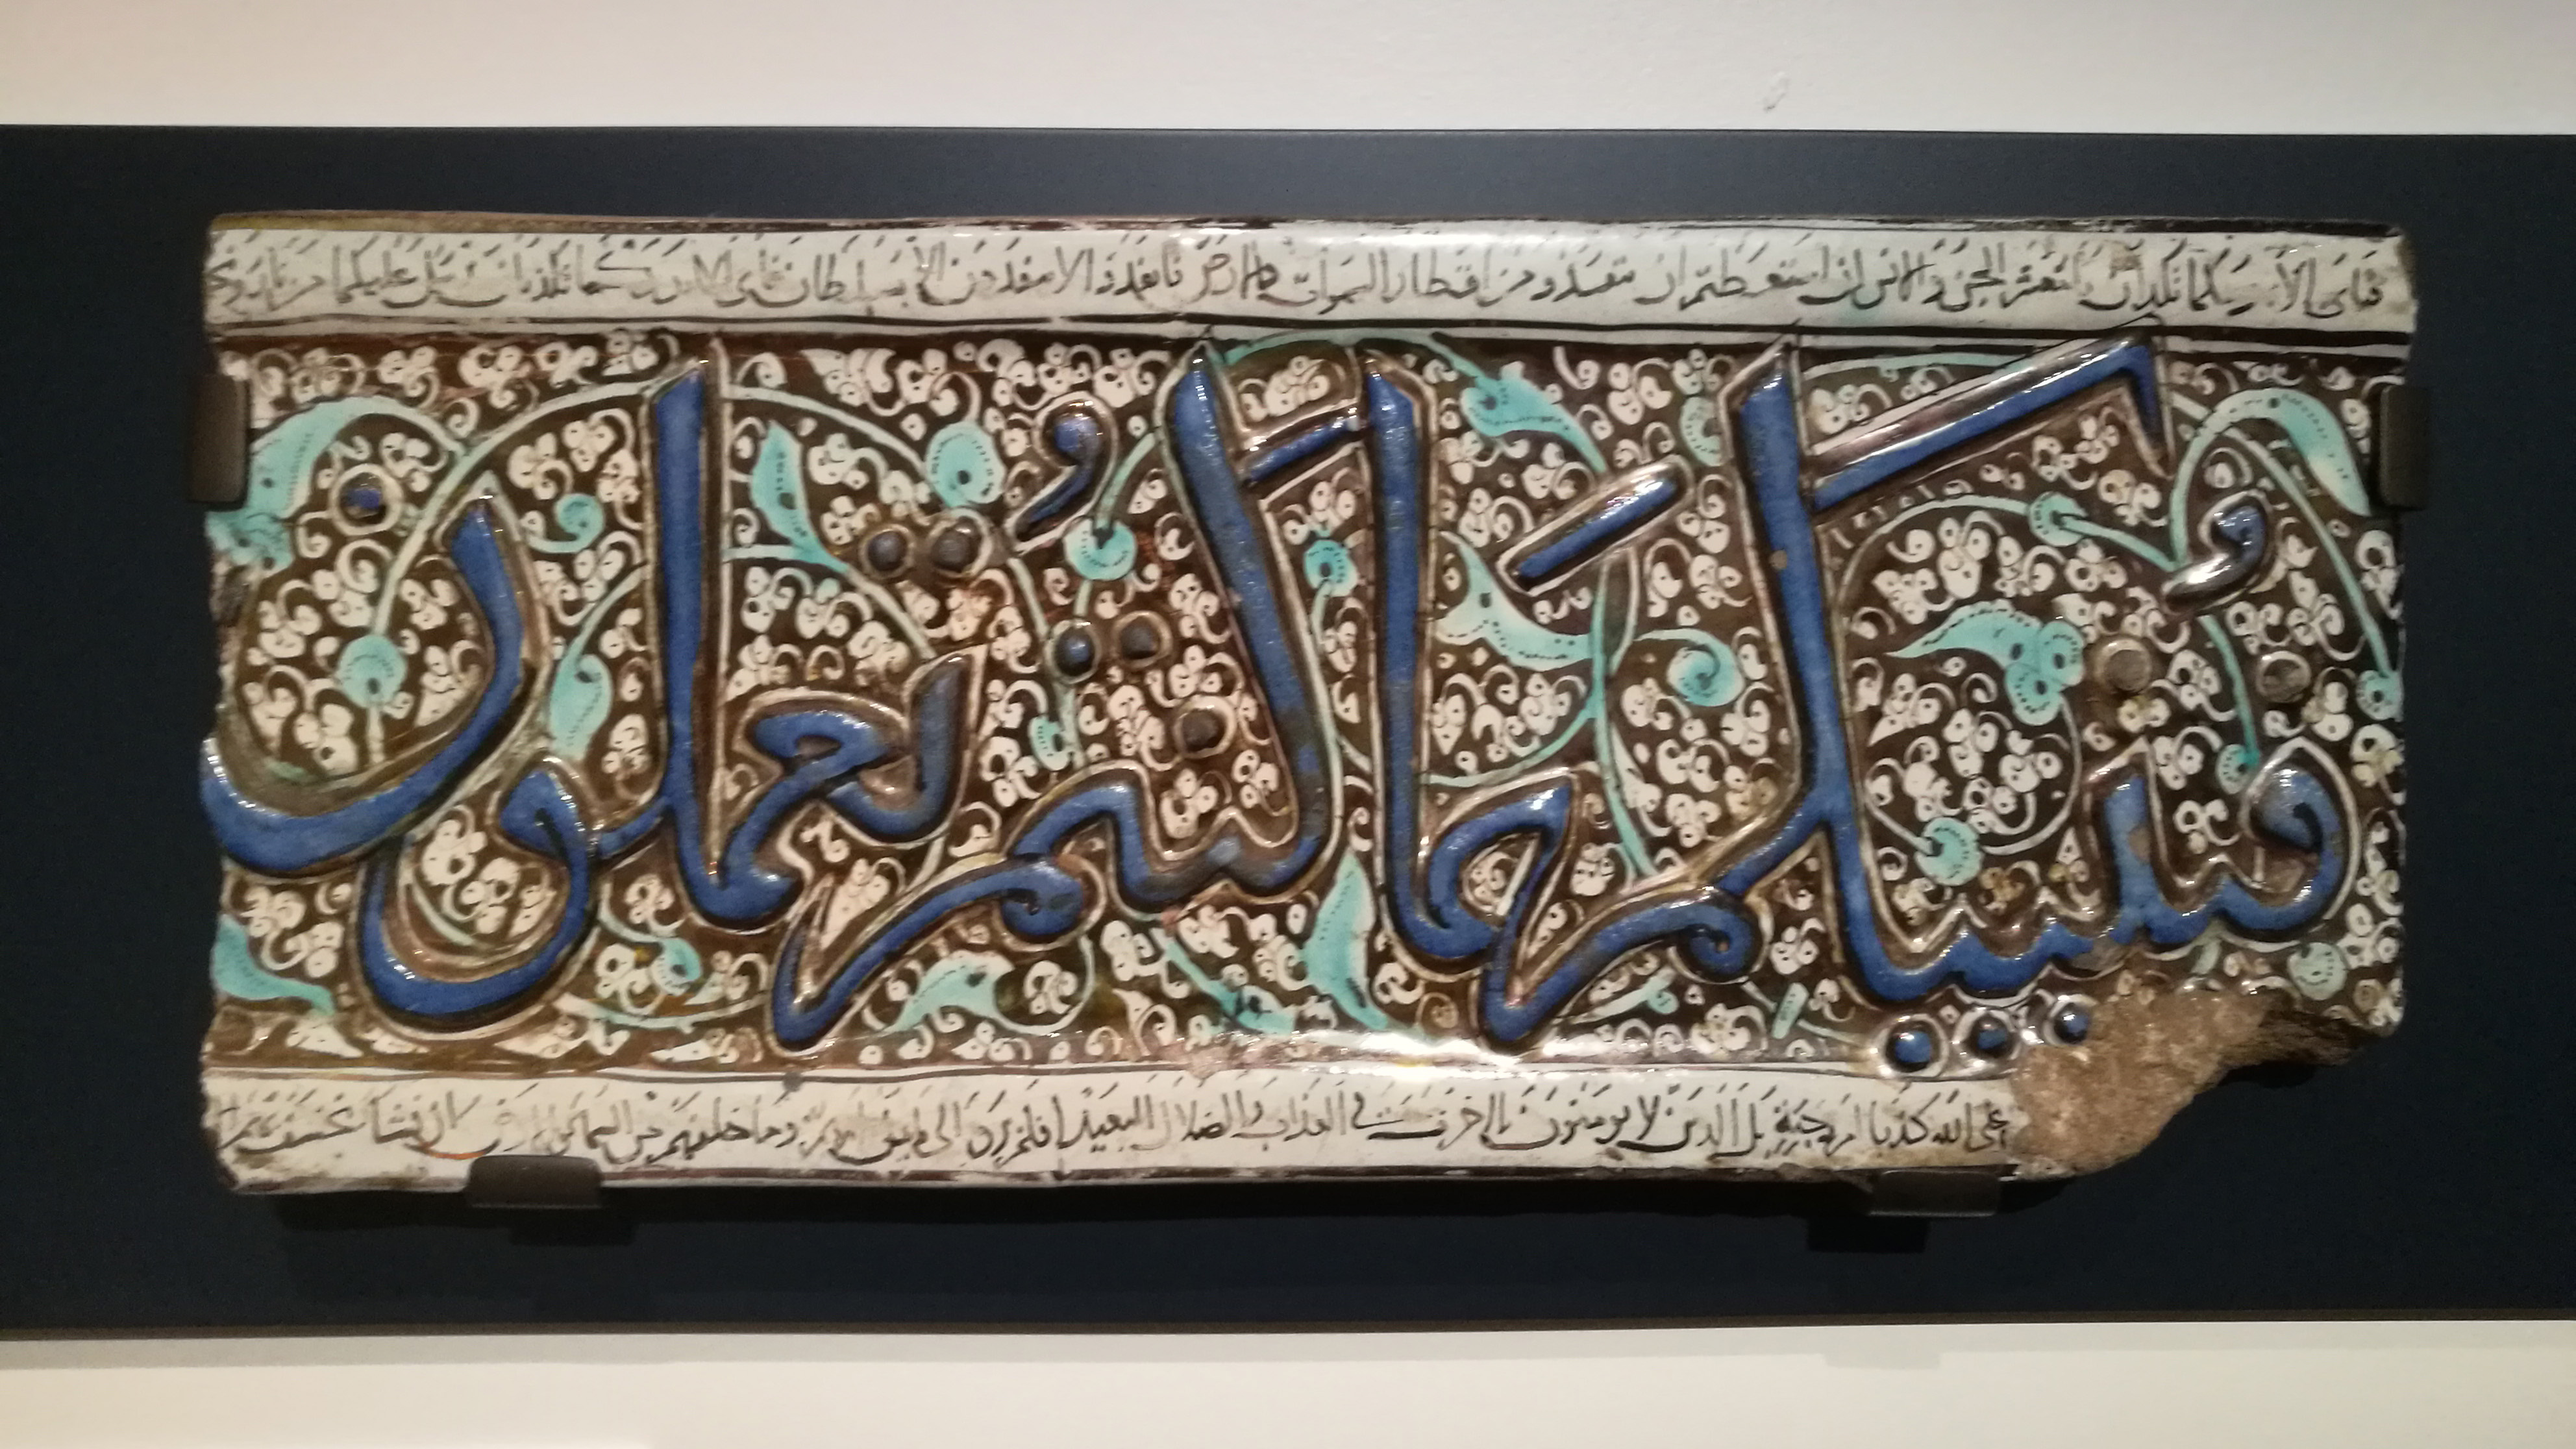 فبأي آلاء ربكما تكذبان يا معشر الجن والإنس إن استطعتم أن تنفذوا من أقطار السموات والأرض فانفذوا لا تنفذون إلا بسلطان فبأي آلاء ربكما تكذبان يرسل عليكما من نار
فينبئكم بما كنتم تعملون
على الله كذبا أم به جنة بل الذين لا يؤمنون بالآخرة في العذاب والضلال البعيد أفلم يروا إلى ما بين أيديهم وما خلفهم من السماء والأرض إن نشأ نخسف بهم